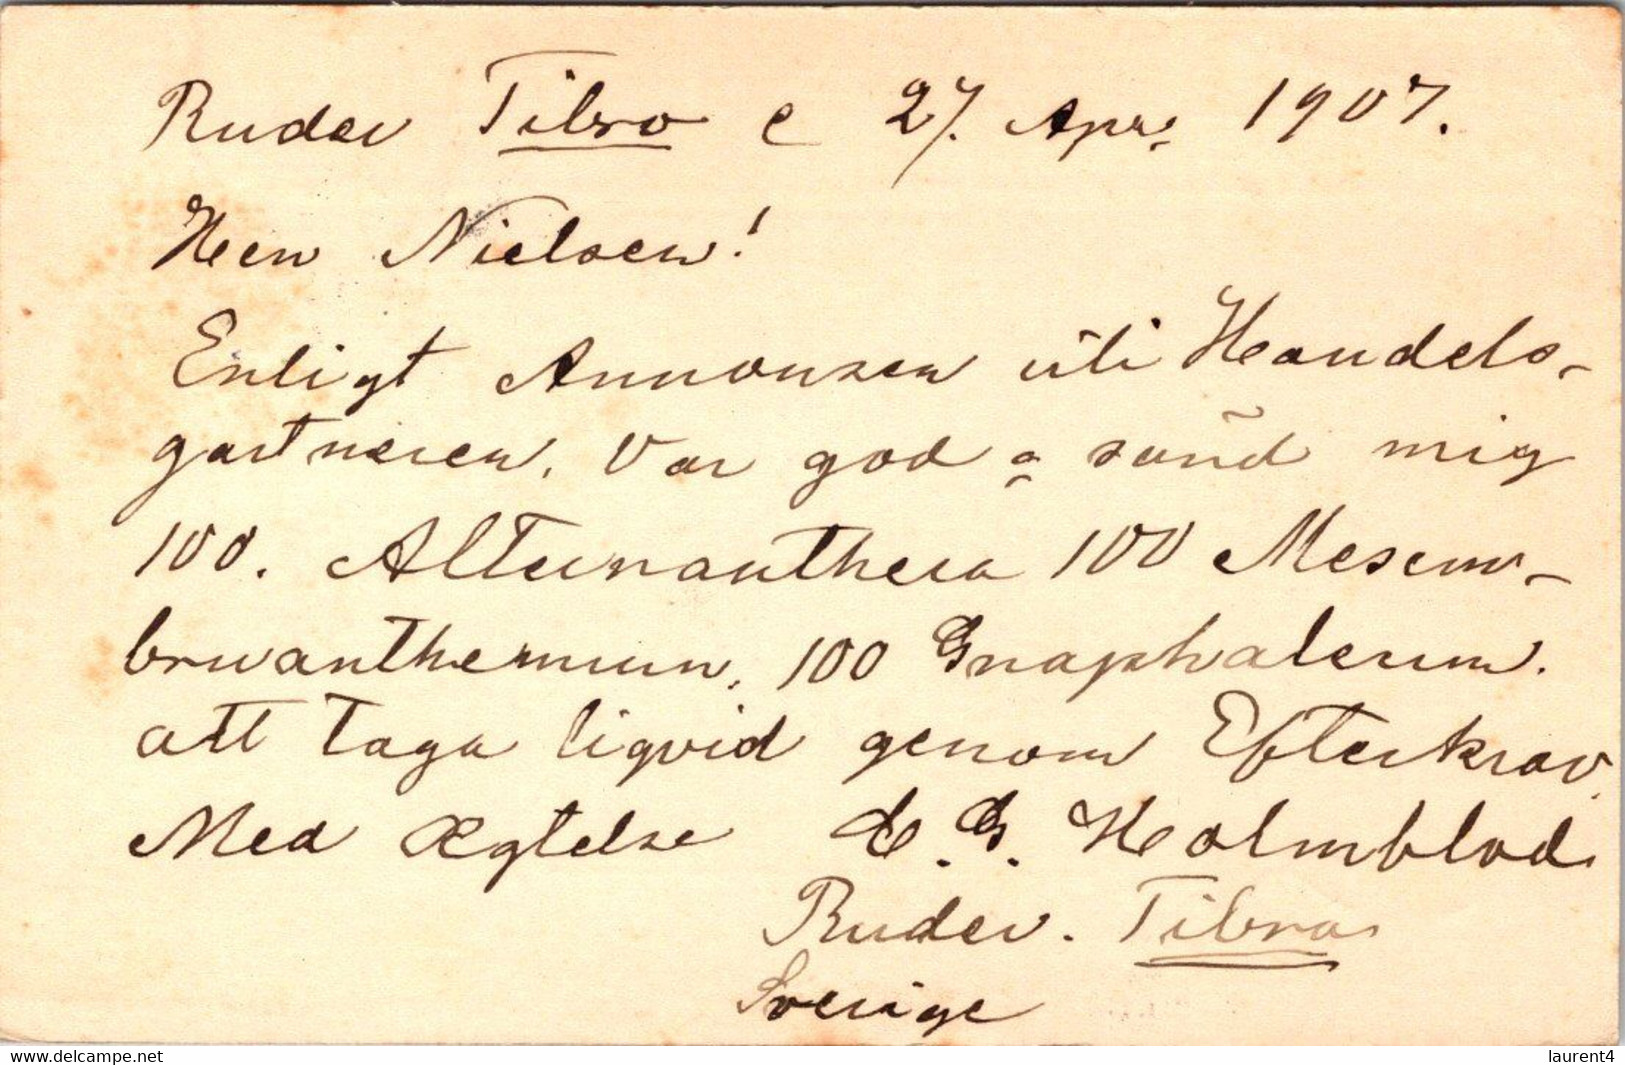 Ruder Tibro e 27. Apr. 1907.
Herr Nielsen!
Enligt Annonsen uti Handels-
gartneren. Var god o sänd mig
100. Alternanthera 100 Mesem-
bruanthemum, 100 Gnaphaleum.
att taga liqvid genom Efterkrav.
Med Ægtelse C. G. Holmblod
Ruder. Tibro
Sverige
https://www.delcampe.net
laurent4